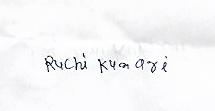 Ruchi kumari